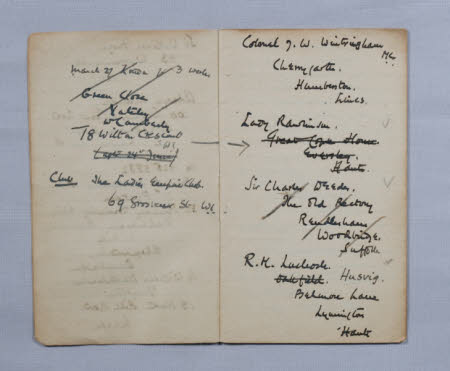 March 27 for 3 weeks
Green Close
Yateley
Nr Camberley
78 Wilton Crescent
SW1
Club The Ladies Empire Club
69 Grosvenor St W1
Colonel J. W. Wintringham MC
Cherrygarth
Humberston
Lincs.
Lady Rawlinson
Great Cope House
Eversley
Hants
Sir Charles
The Old Rectory
Rendlesham
Woodbridge
Suffolk
R. H.
Oakfield. Husvig.
Belmore Lane
Lymington
Hants